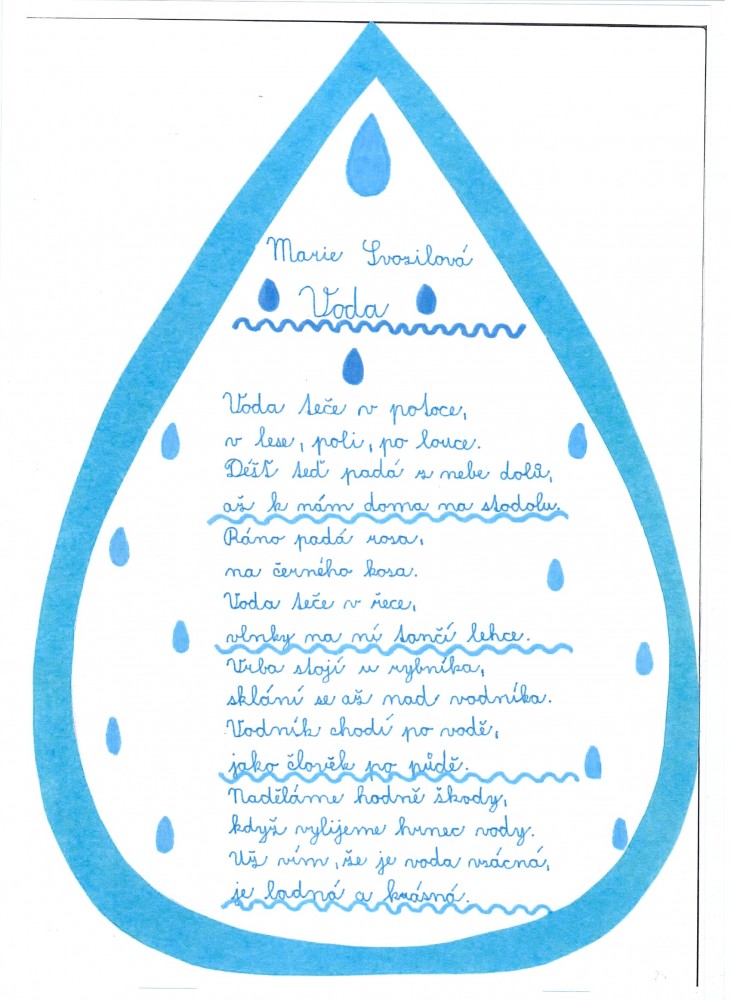 Marie Svozilová
Voda
Voda teče v potoce,
v lese, poli, po louce.
Déšť teď padá z nebe dolů,
až k nám doma na stodolu.
Ráno padá rosa,
na černého kosa.
Voda teče v řece,
vlnky na ní tančí lehce.
Vrba stojí u rybníka,
sklání se až nad vodníka.
Vodník chodí po vodě,
jako člověk po půdě.
Naděláme hodně škody,
když vylijeme hrnec vody.
Už vím, že je voda vzácná,
je ladná a krásná.